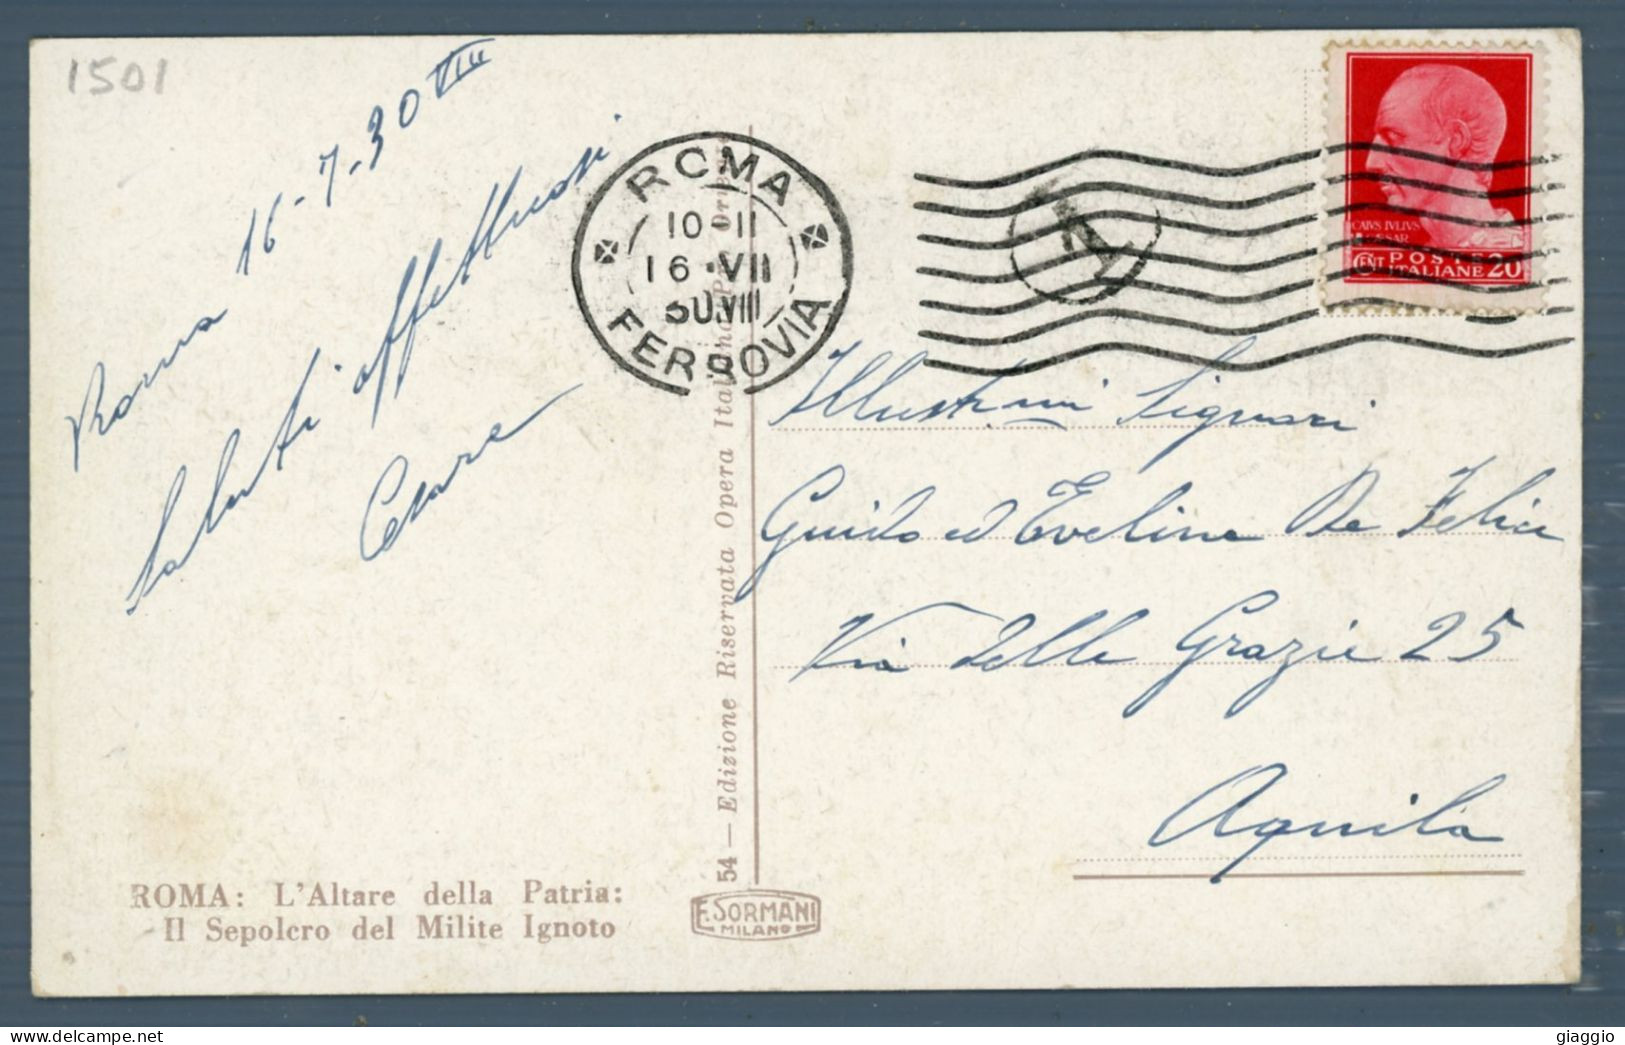 1501
Roma 16-7-30 VIII
Saluti affettuosi
Cesare
ROMA
10-11
16·VII
30.VIII
FERROVIA
CAIVS IVLIVS
CAESAR
CENT POSTE
ITALIANE 20
Illustrimi Signori
Guido ed Evelina De Felice
Via delle Grazie 25
Aquila
54 — Edizione Riservata Opera Italiana Pro Oriente
ROMA: L'Altare della Patria:
Il Sepolcro del Milite Ignoto
F. SORMANI
MILANO
giaggio